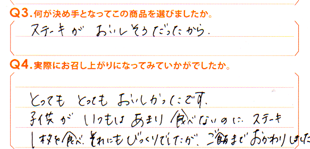 Q3.何が決め手となってこの商品を選びましたか。
ステーキが おいしそうだったから.
Q4.実際にお召し上がりになってみていかがでしたか。
とっても とっても おいしかったです.
子供が いつもは あまり 食べないのに ステーキ
1枚を食べ、それにもびっくりでしたが、ご飯まで おかわりしました